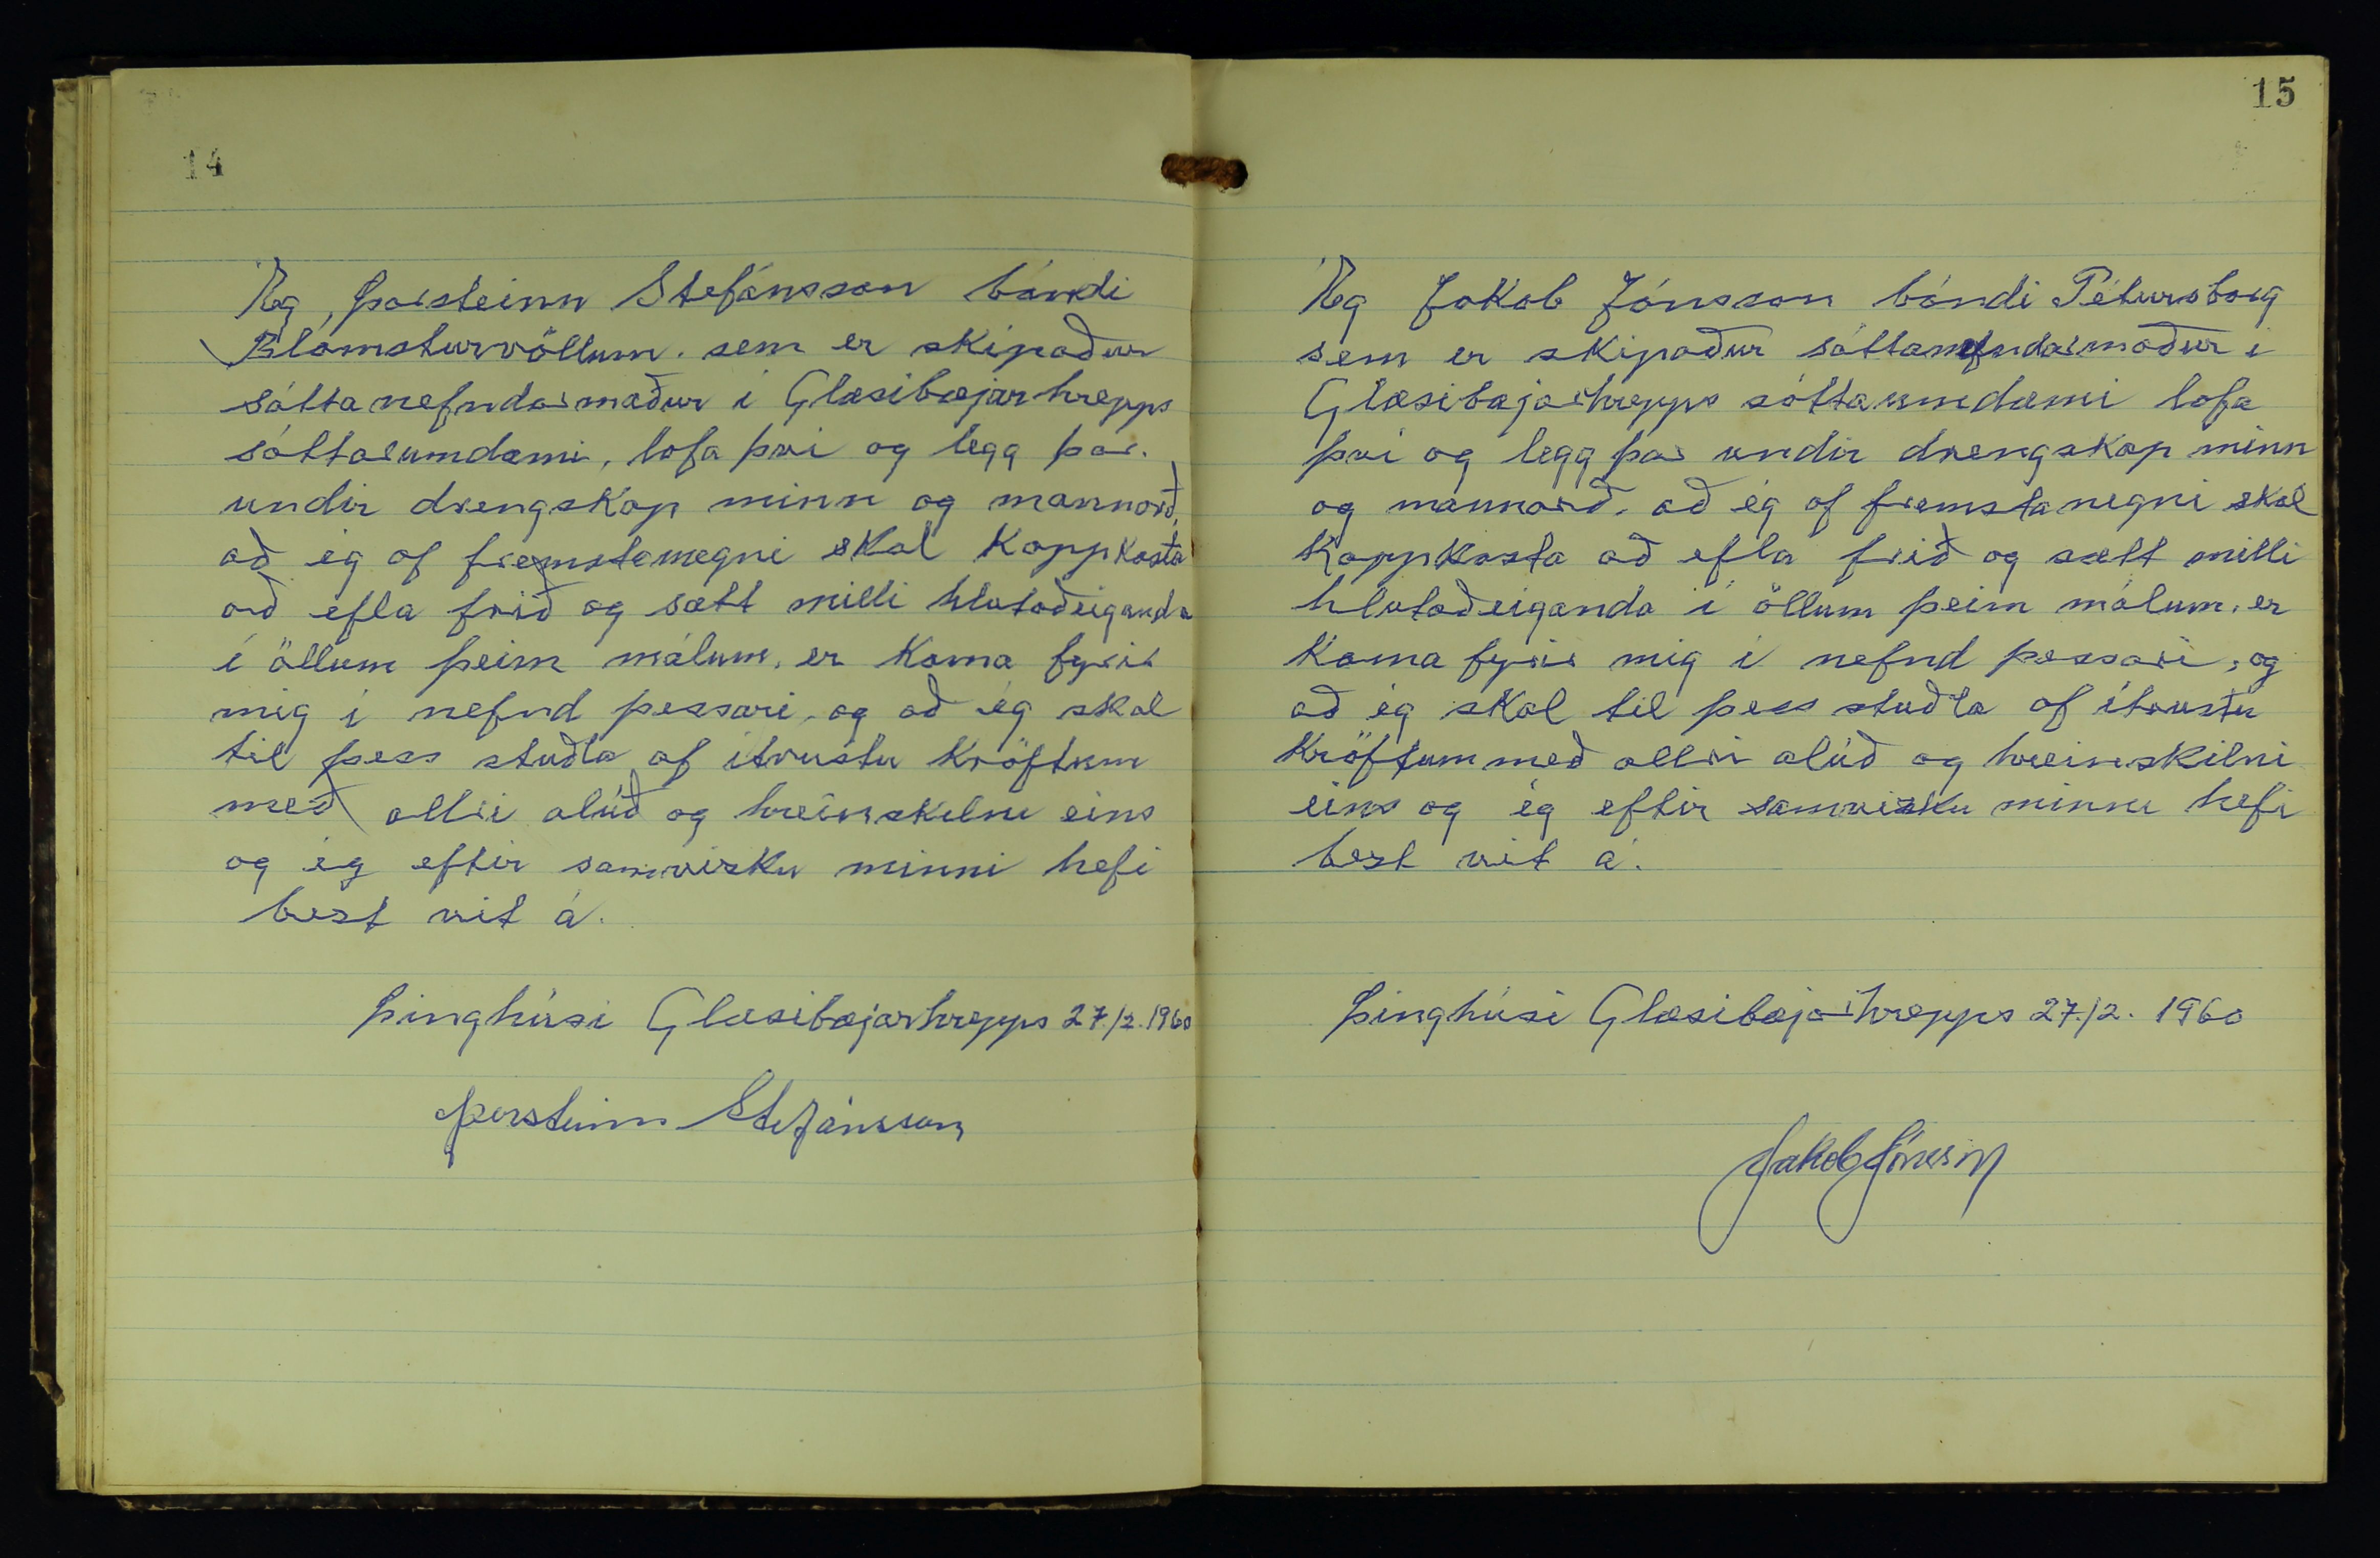 14
Ég, Þorsteinn Stefánsson bóndi
Blómsturvöllum. sem er skipaður
sáttanefndarmaður í Glæsibæjarhrepps
sáttaumdæmi, lofa því og legg þar.
undir drengskap minn og mannorð,
að ég af fremstamegni skal kappkosta
að efla frið og sætt milli hlutaðeiganda
í öllum þeim málum, er koma fyrir
mig í nefnd þessari, og að ég skal
til þess stuðla af ítrustu kröftum
með allri alúð og hreinskilni eins
og ég eftir samvizku minni hefi
best vit á.
Þinghúsi Glæsibæjarhrepps 27./2. 1960
Þorsteinn Stefánsson
15
Ég Jakob Jónsson bóndi Pétursborg
sem er skipaður sáttanefndarmaður í
Glæsibæjarhrepps sáttaumdæmi lofa
því og legg þar undir drengskap minn
og mannorð, að ég af fremsta megni skal
kappkosta að efla frið og sætt milli
hlutaðeiganda í öllum þeim málum, er
koma fyrir mig í nefnd þessari, og
að ég skal til þess stuðla af ítrustu
kröftum með allri alúð og hreinskilni
eins og ég eftir samvizku minni hefi
best vit á.
Þinghúsi Glæsibæjarhrepps 27./2. 1960
Jakob Jónsson